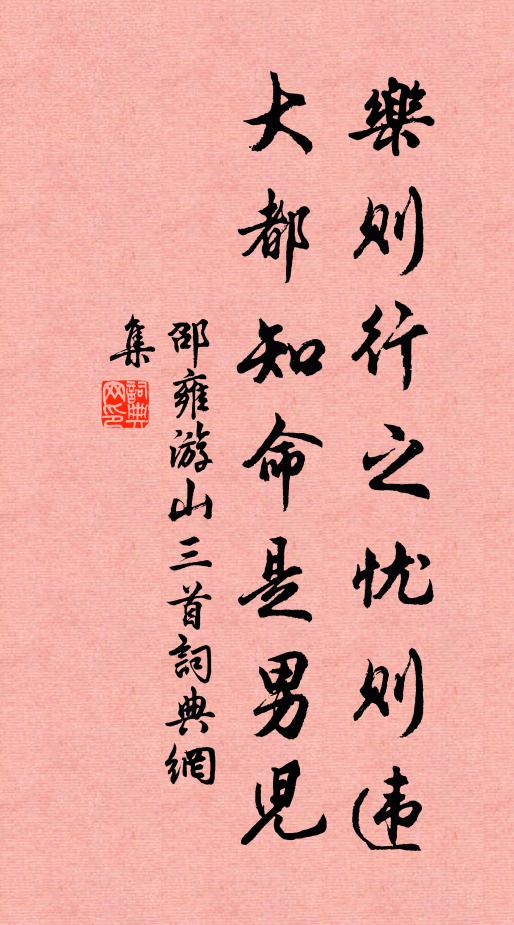 樂則行之忧則违
大都知命是男兒
邵雍游山三首詞典網
集
詞典
网印